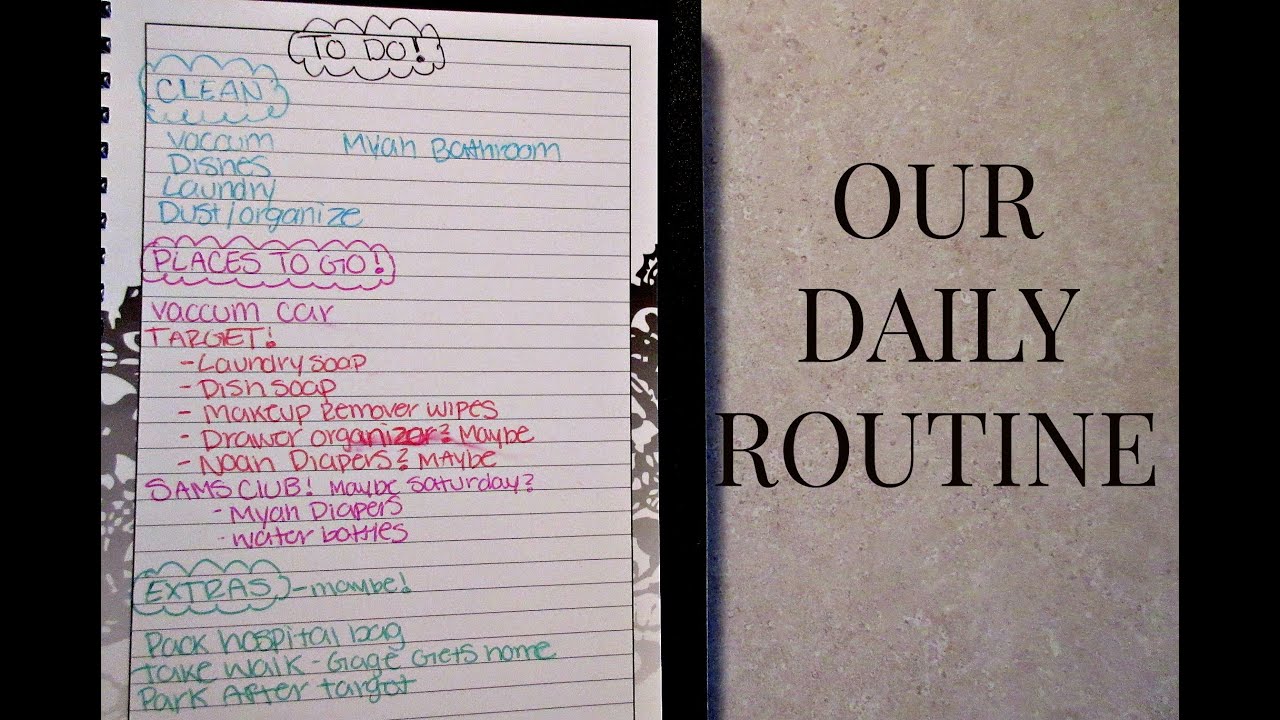 TO DO!
CLEAN
Vaccum Myah Bathroom
Dishes
Laundry
Dust/organize
PLACES TO GO!
Vaccum car
TARGET!
- Laundry soap
- Dish soap
- Makeup Remover wipes
- Drawer organizer? Maybe
- Noah Diapers? MAYBE
SAMS CLUB! Maybe Saturday?
- Myah Diapers
- water bottles
EXTRAS - maybe!
Pack hospital bag
take walk - Gage Gets home
Park After target
OUR
DAILY
ROUTINE